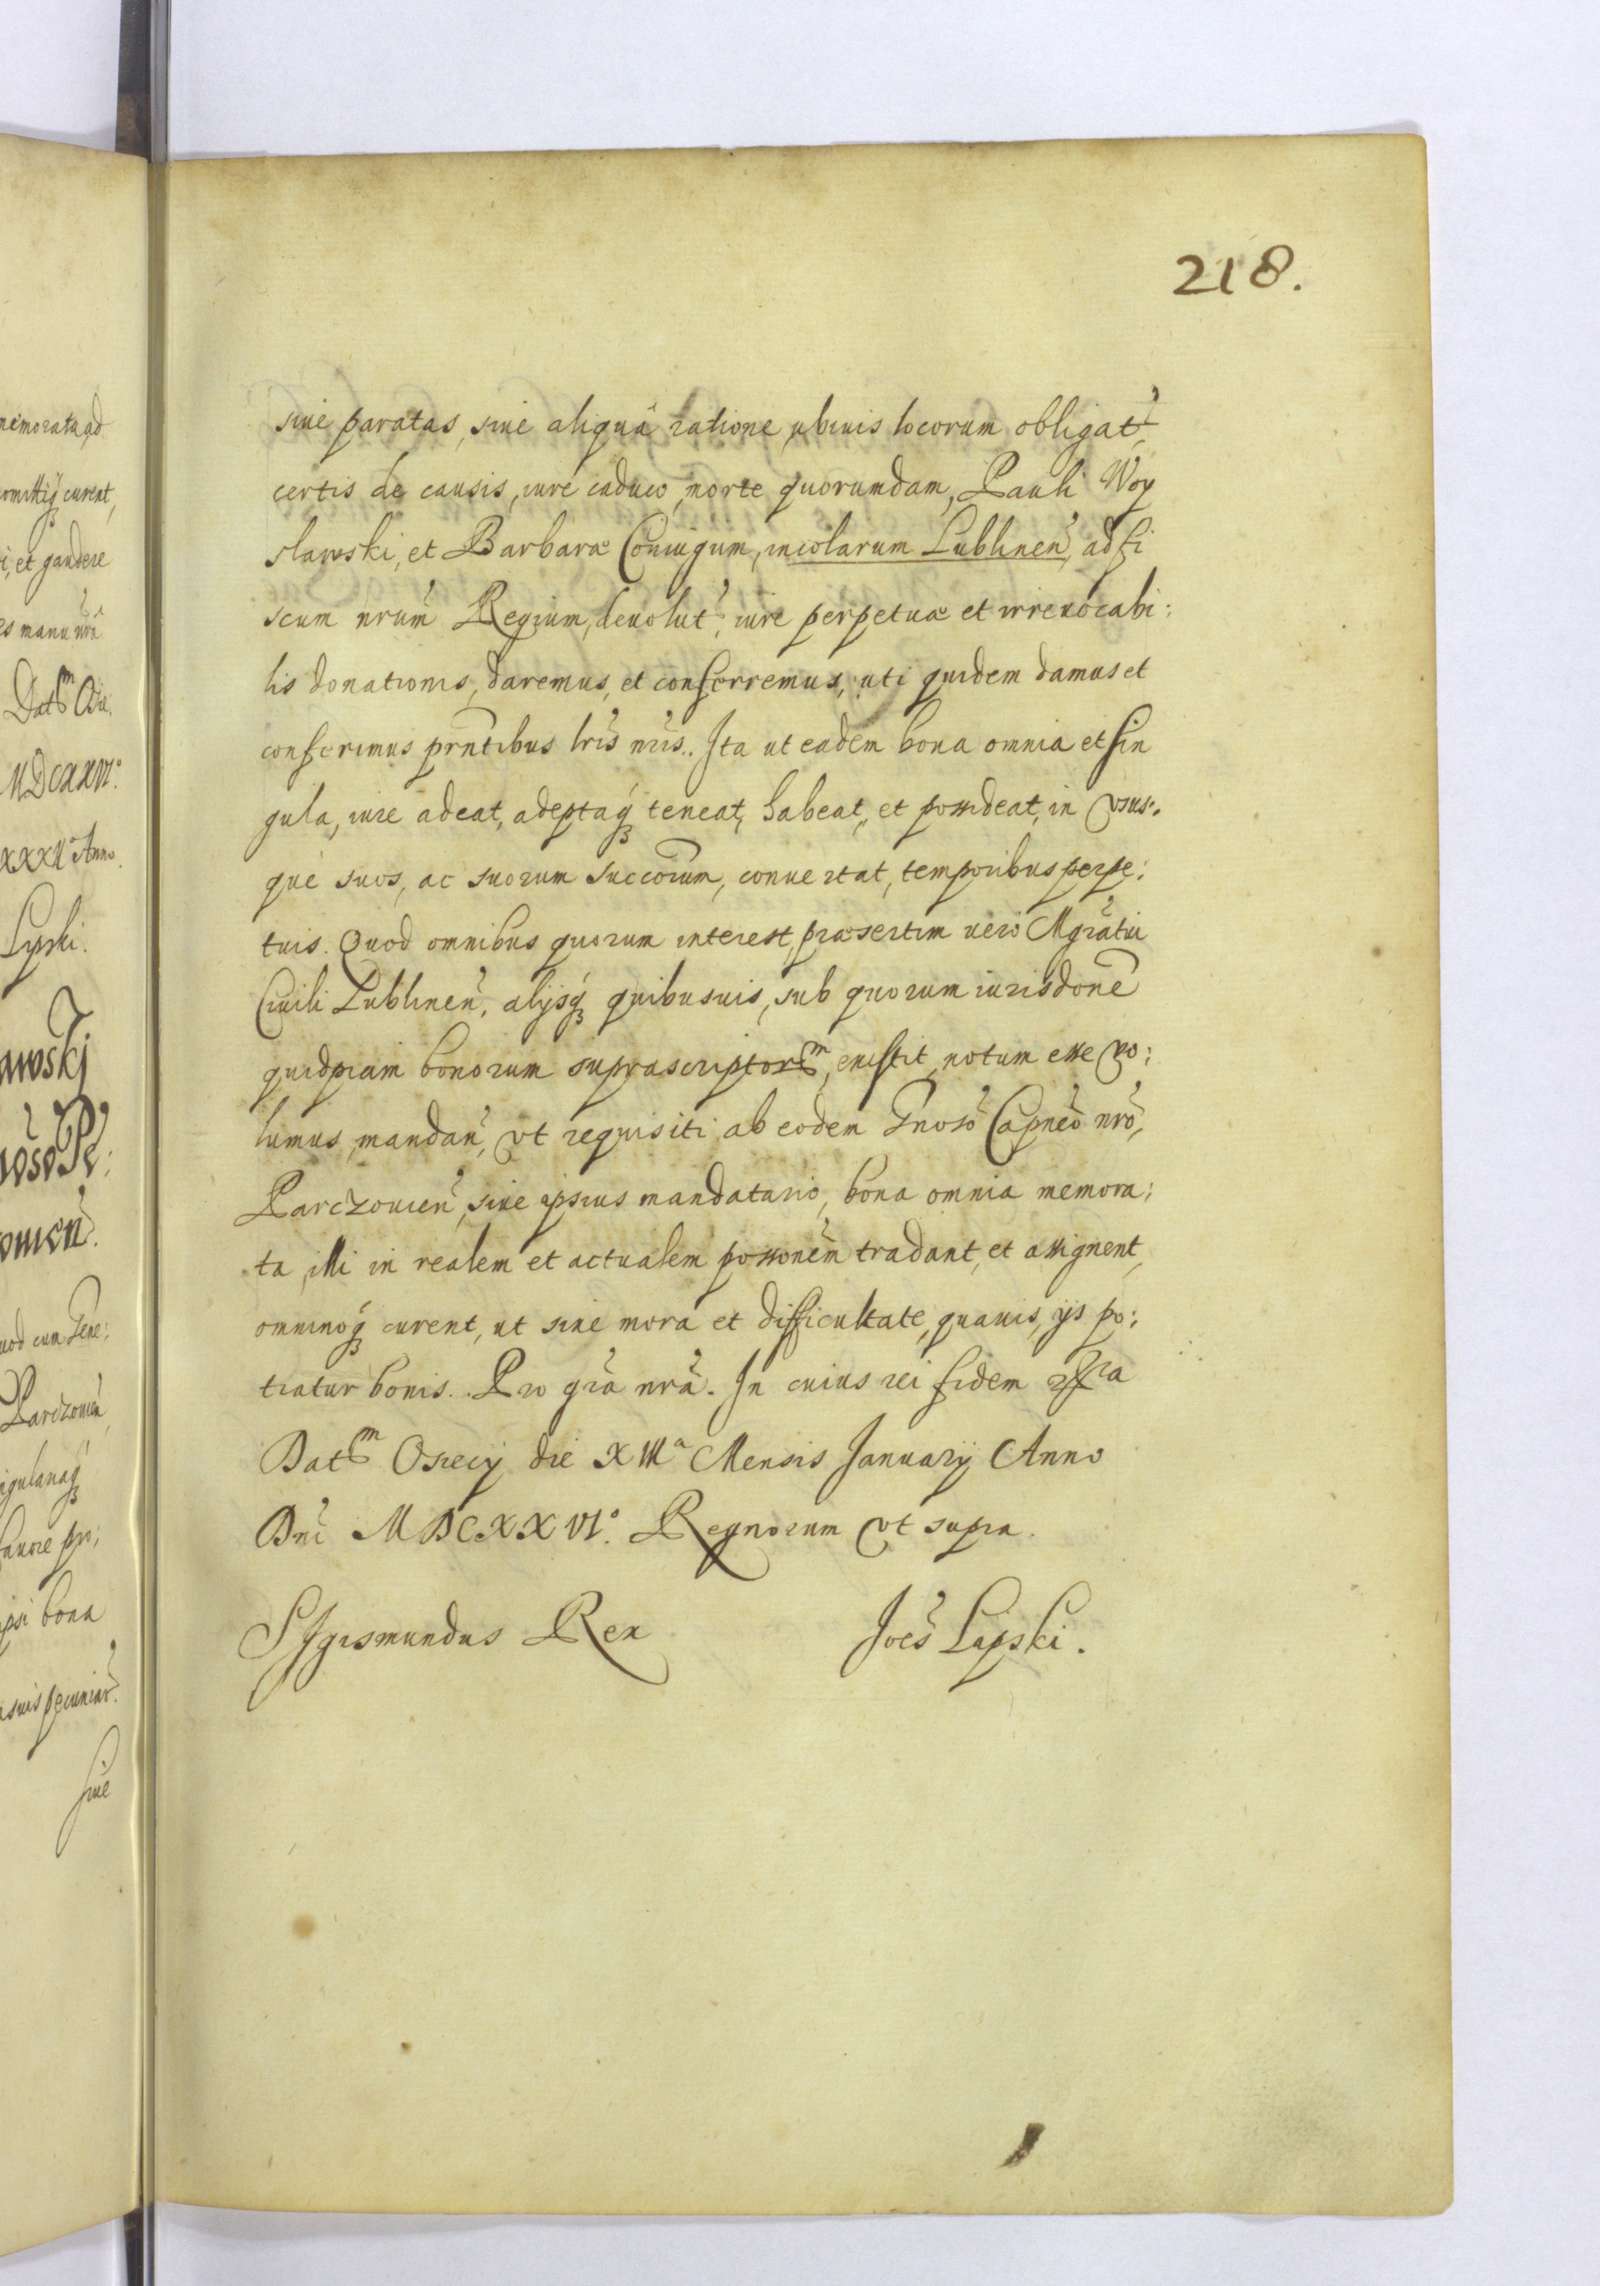 218.
siue paratas, siue aliquâ ratione, ubiuis locorum obligat,
certis de causis, iure caduco, morte quorumdam, Pauli Woy
slawski, et Barbaræ Coniugum, incolarum Lublinen̄, ad fi
scum nrum̄ Regium, deuolut̄, iure perpetuæ et irreuocabi:
lis donationis, daremus, et conferremus, uti quidem damus et
conferimus prntibus lris̄ nris̄. Ita ut eadem bona omnia et sin
gula, iure adeat, adeptaq́ʒ teneat, habeat, et possideat, in vsus.
què suos, ac suorum succorum̄, conuertat, temporibus perpe:
tuis. Quod omnibus quorum interest, præsertim uero Mgratui
Ciuili Lublinen̄, alijsq́ʒ quibusuis, sub quorum iurisdone̅
quidpiam bonorum suprascriptorᵐ, existit, notum esse vo:
lumus, mandan̄, vt requisiti ab eodem Gnoso̅ Capneo̅ nro̅,
Parczouien̄, siue ipsius mandatario, bona omnia memora:
ta, illi in realem et actualem possonem̄ tradant, et assignent,
omninoq́ʒ curent, ut sine mora et difficultate, quauis, ijs po:
tiatur bonis. Pro gra̅ nra̅. In cuius rei fidem
Datᵐ Osiecÿ die XIIIᵃ Mensis Januarÿ Anno
Dni̅ MDCXXVI°. Regnorum vt supra.
Sigismundus Rex Joes̄ Lipski.